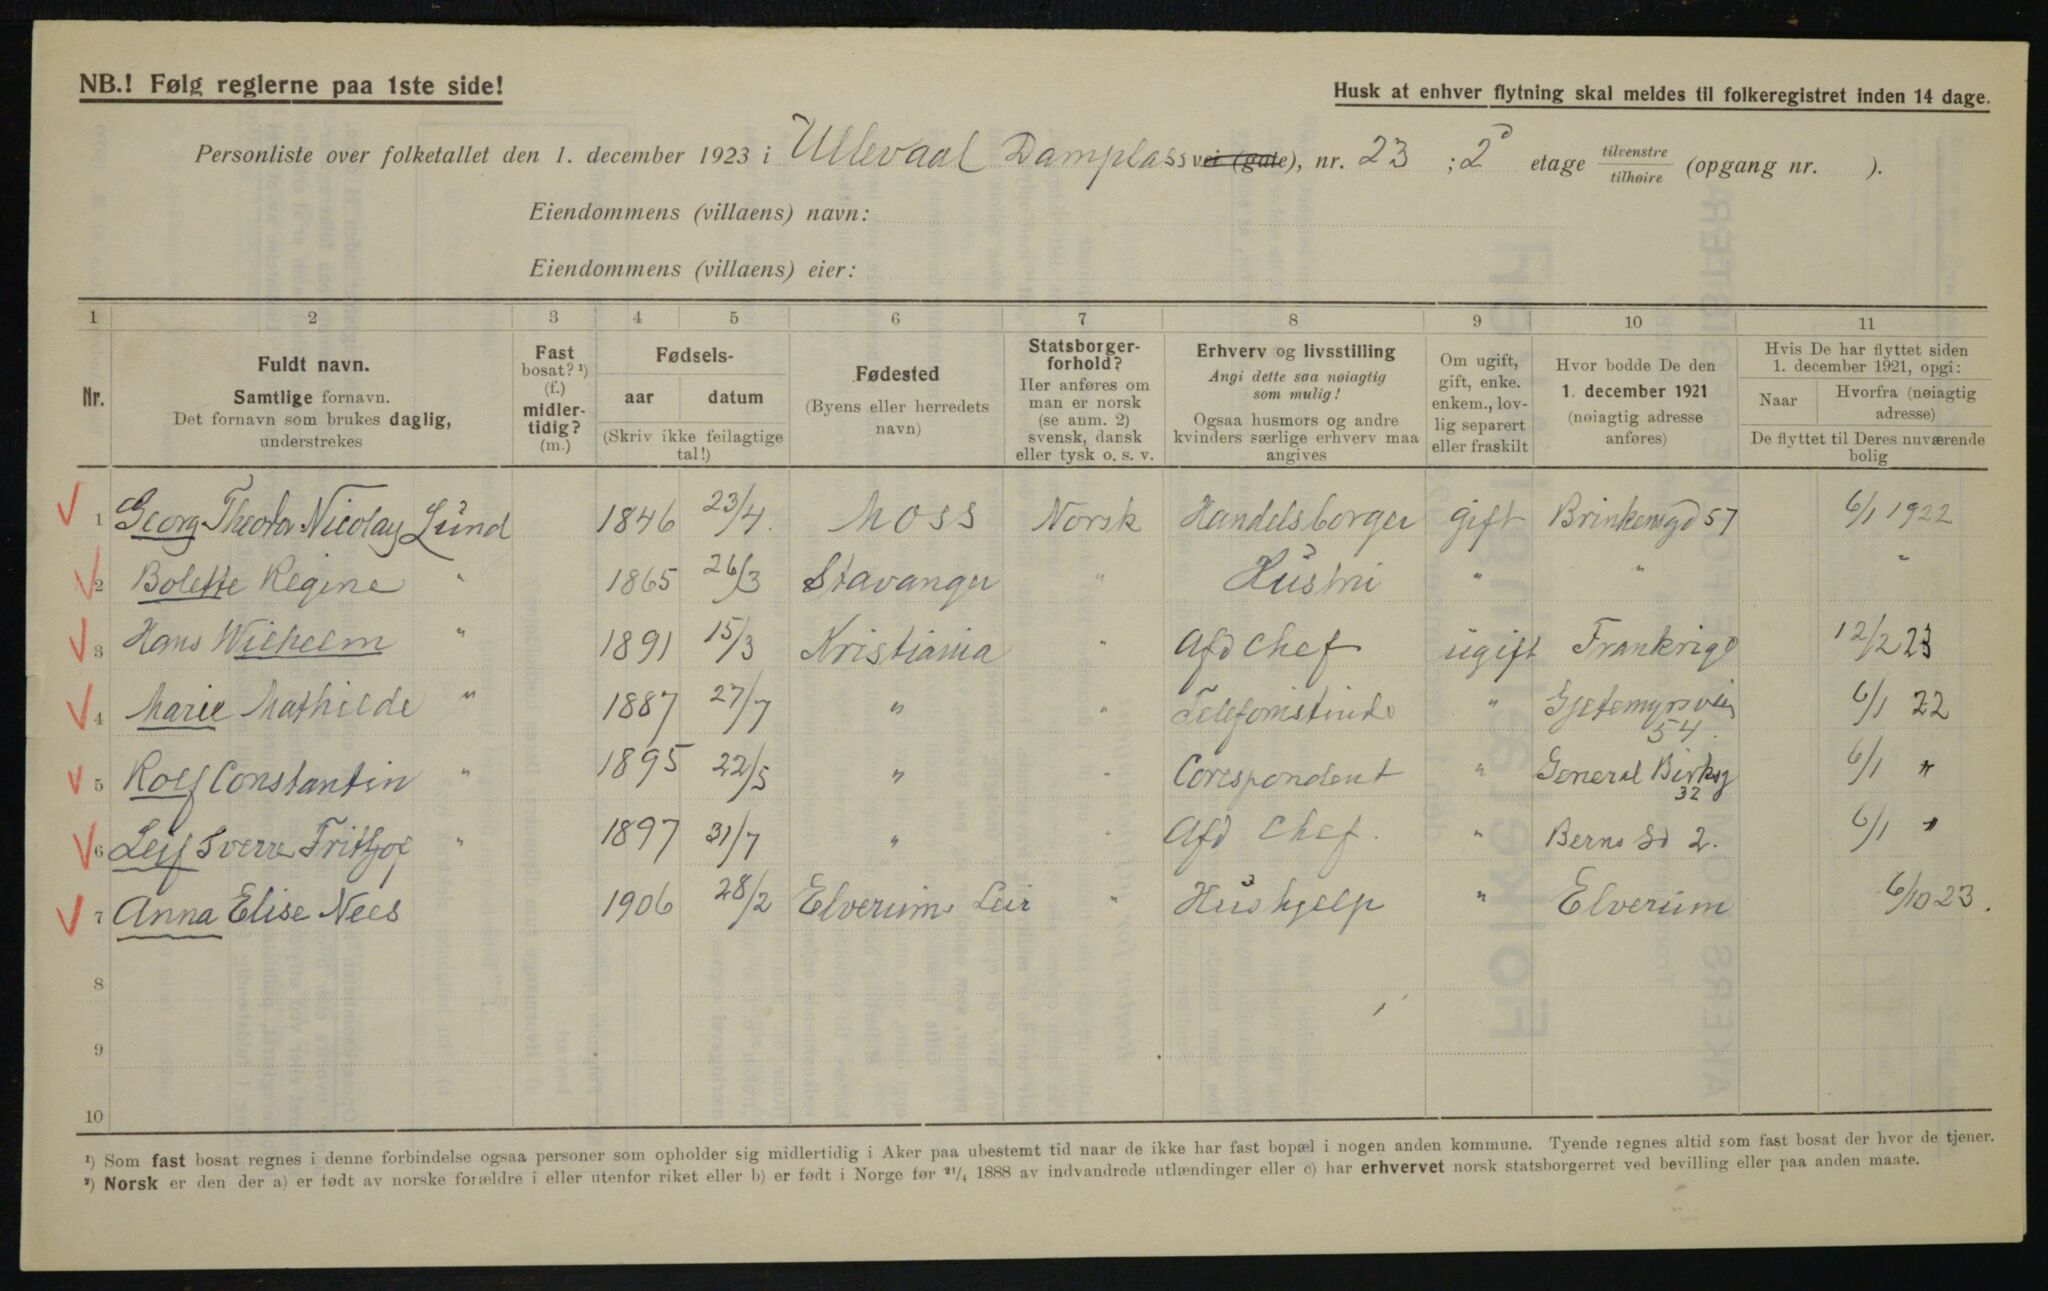 NB.! Følg reglerne paa 1ste side!
Husk at enhver flytning skal meldes til folkeregistret inden 14 dage.
Personliste over folketallet den 1. december 1923 i Ullevaal Damplass vei (gate), nr. 23 ; 2 etage tilvenstre tilhøire (opgang nr. ).
Eiendommens (villaens) navn:
Eiendommens (villaens) eier:
1 2 3 4 5 6 7 8 9 10 11
Nr.
Fuldt navn.
Samtlige fornavn.
Det fornavn som brukes daglig,
understrekes
Fast
bosat? ¹)
(f.)
midler-
tidig?
(m.)
Fødsels-
aar datum
(Skriv ikke feilagtige
tal!)
Fødested
(Byens eller herredets
navn)
Statsborger-
forhold?
Her anføres om
man er norsk
(se anm. 2)
svensk, dansk
eller tysk o. s. v.
Erhverv og livsstilling
Angi dette saa nøiagtig
som mulig!
Ogsaa husmors og andre
kvinders særlige erhverv maa
angives
Om ugift,
gift, enke.
enkem., lov-
lig separert
eller fraskilt
Hvor bodde De den
1. december 1921
(nøiagtig adresse
anføres)
Hvis De har flyttet siden
1. december 1921, opgi:
Naar Hvorfra (nøiagtig
adresse)
De flyttet til Deres nuværende
bolig
1 Georg Theodor Nicolay Lund 1846 23/4. Moss Norsk Handelsborger gift Brinkensgd 57 6/1 1922
2 Bolette Regine " 1865 26/3 Stavanger " Hustru " " "
3 Hans Wilhelm " 1891 15/3 Kristiania " Afd chef ugift Frankrige 12/2 23
4 Marie Mathilde " 1887 27/7 " " Telefonistinde " Gjetemyrsvein 54. 6/1 22
5 Rolf Constantin " 1895 22/5 " " Corespondent " General Birksg 32 6/1 "
6 Leif Sverre Fritjof " 1897 31/7 " " Afd Chef. " Berns Gd 2. 6/1 "
7 Anna Elise Nees 1906 28/2 Elverum Leir " Hushjelp " Elverum 6/10 23.
8
9
10
¹) Som fast bosat regnes i denne forbindelse ogsaa personer som opholder sig midlertidig i Aker paa ubestemt tid naar de ikke har fast bopæl i nogen anden kommune. Tyende regnes altid som fast bosat der hvor de tjener.
²) Norsk er den der a) er født av norske forældre i eller utenfor riket eller b) er født i Norge før ²¹/₄ 1888 av indvandrede utlændinger eller c) har erhvervet norsk statsborgerret ved bevilling eller paa anden maate.